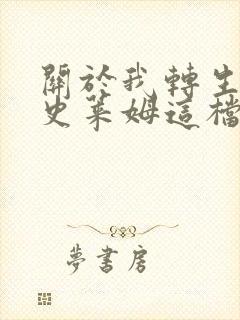 關於我轉生
史萊姆這檔
夢書房